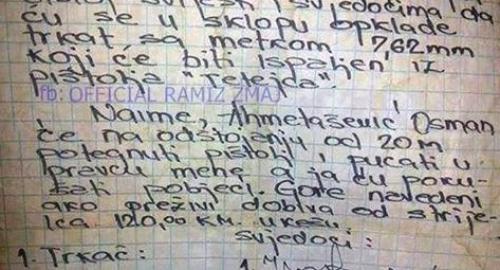 svjedočima da
ću se u sklopu opklade
trkat, sa metkom 7,62mm
koji će biti ispaljen iz
pištolja "Tetejca".
fb: OFFICIAL RAMIZ ZMAJ
Naime, Ahmetašević Osman
će na odstojanju od 20m
potegnuti pištolj i pucati u
pravcu mene a ja ću poku-
šati pobjeći. Gore navedeni
ako preživi dobiva od strije-
lca 120,00 KM. u kešu.
svjedoci:
1. Trkač:
1.